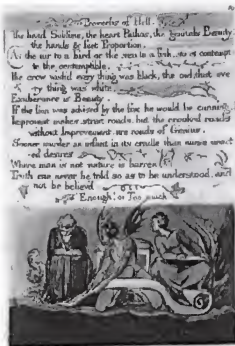 Proverbs of Hell.
The head Sublime, the heart Pathos, the genitals Beauty
the hands & feet Proportion.
As the air to a bird or the sea to a fish, so is contempt
to the contemptible.
The crow wish'd every thing was black, the owl, that eve-
ry thing was white.
Exuberance is Beauty.
If the lion was advised by the fox, he would be cunning.
Improvement makes strait roads, but the crooked roads
without Improvement, are roads of Genius.
Sooner murder an infant in its cradle than nurse unact-
ed desires
Where man is not nature is barren.
Truth can never be told so as to be understood, and
not be believ'd
Enough! or Too much